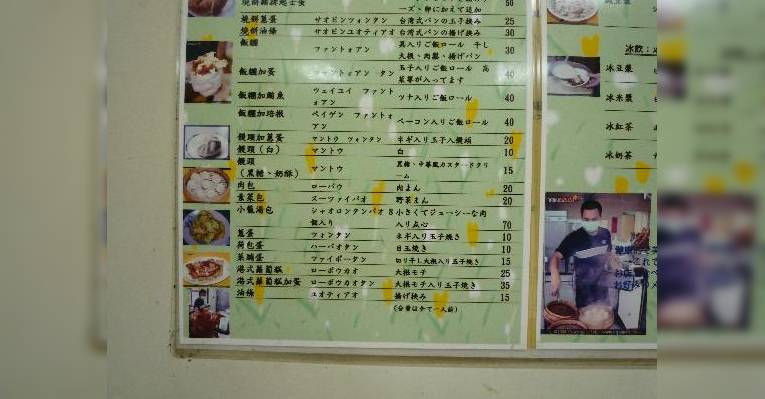 ーズ、卵に加えて追加
燒餅蔥蛋 サオビンツォンタン 台湾式パンの玉子挟み 25
燒餅油條 サオビンユオティアオ 台湾式パンの揚げ挟み 30
飯糰 ファントゥアン 具入りご飯ロール 干し 30
大根、肉鬆、揚げパン
飯糰加蛋 ファントゥアン タン 玉子入りご飯ロール 高 40
菜等が入ってます
飯糰加鮪魚 ウェイユイ ファントゥアン ツナ入りご飯ロール 40
飯糰加培根 ペイゲン ファントゥアン ベーコン入りご飯ロール 40
饅頭加蔥蛋 マントウ ツォンタン ネギ入り玉子入饅頭 20
饅頭(白) マントウ 白 10
饅頭
(黑糖、奶酥) マントウ 黒糖、中華風カスタードクリーム 15
肉包 ローバウ 肉まん 20
素菜包 スーツァイバオ 野菜まん 20
小籠湯包 シャオロンタンバオ 8 小さくてジューシーな肉
個入り 入り点心 70
蔥蛋 ツォンタン ネギ入り玉子焼き 10
荷包蛋 ハーバオタン 目玉焼き 10
菜脯蛋 ツァイポータン 切り干し大根入り玉子焼き 15
港式蘿蔔糕 ローボウカオ 大根モチ 25
港式蘿蔔糕加蛋 ローボウカオタン 大根モチ入り玉子焼き 35
油條 ユオティアオ 揚げ挟み 15
(分量は全て一人前)
冰飲:
冰豆漿
冰米漿
冰紅茶
冰奶茶